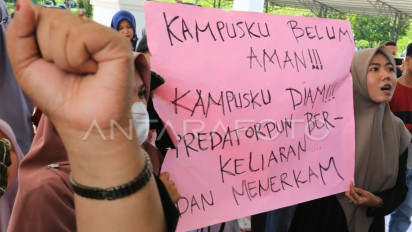 KAMPUSKU BELUM
AMAN!!!
KAMPUSKU DIAM!!!
PREDATORPUN BER-
KELIARAN...
DAN MENERKAM
ANTARAFOTO